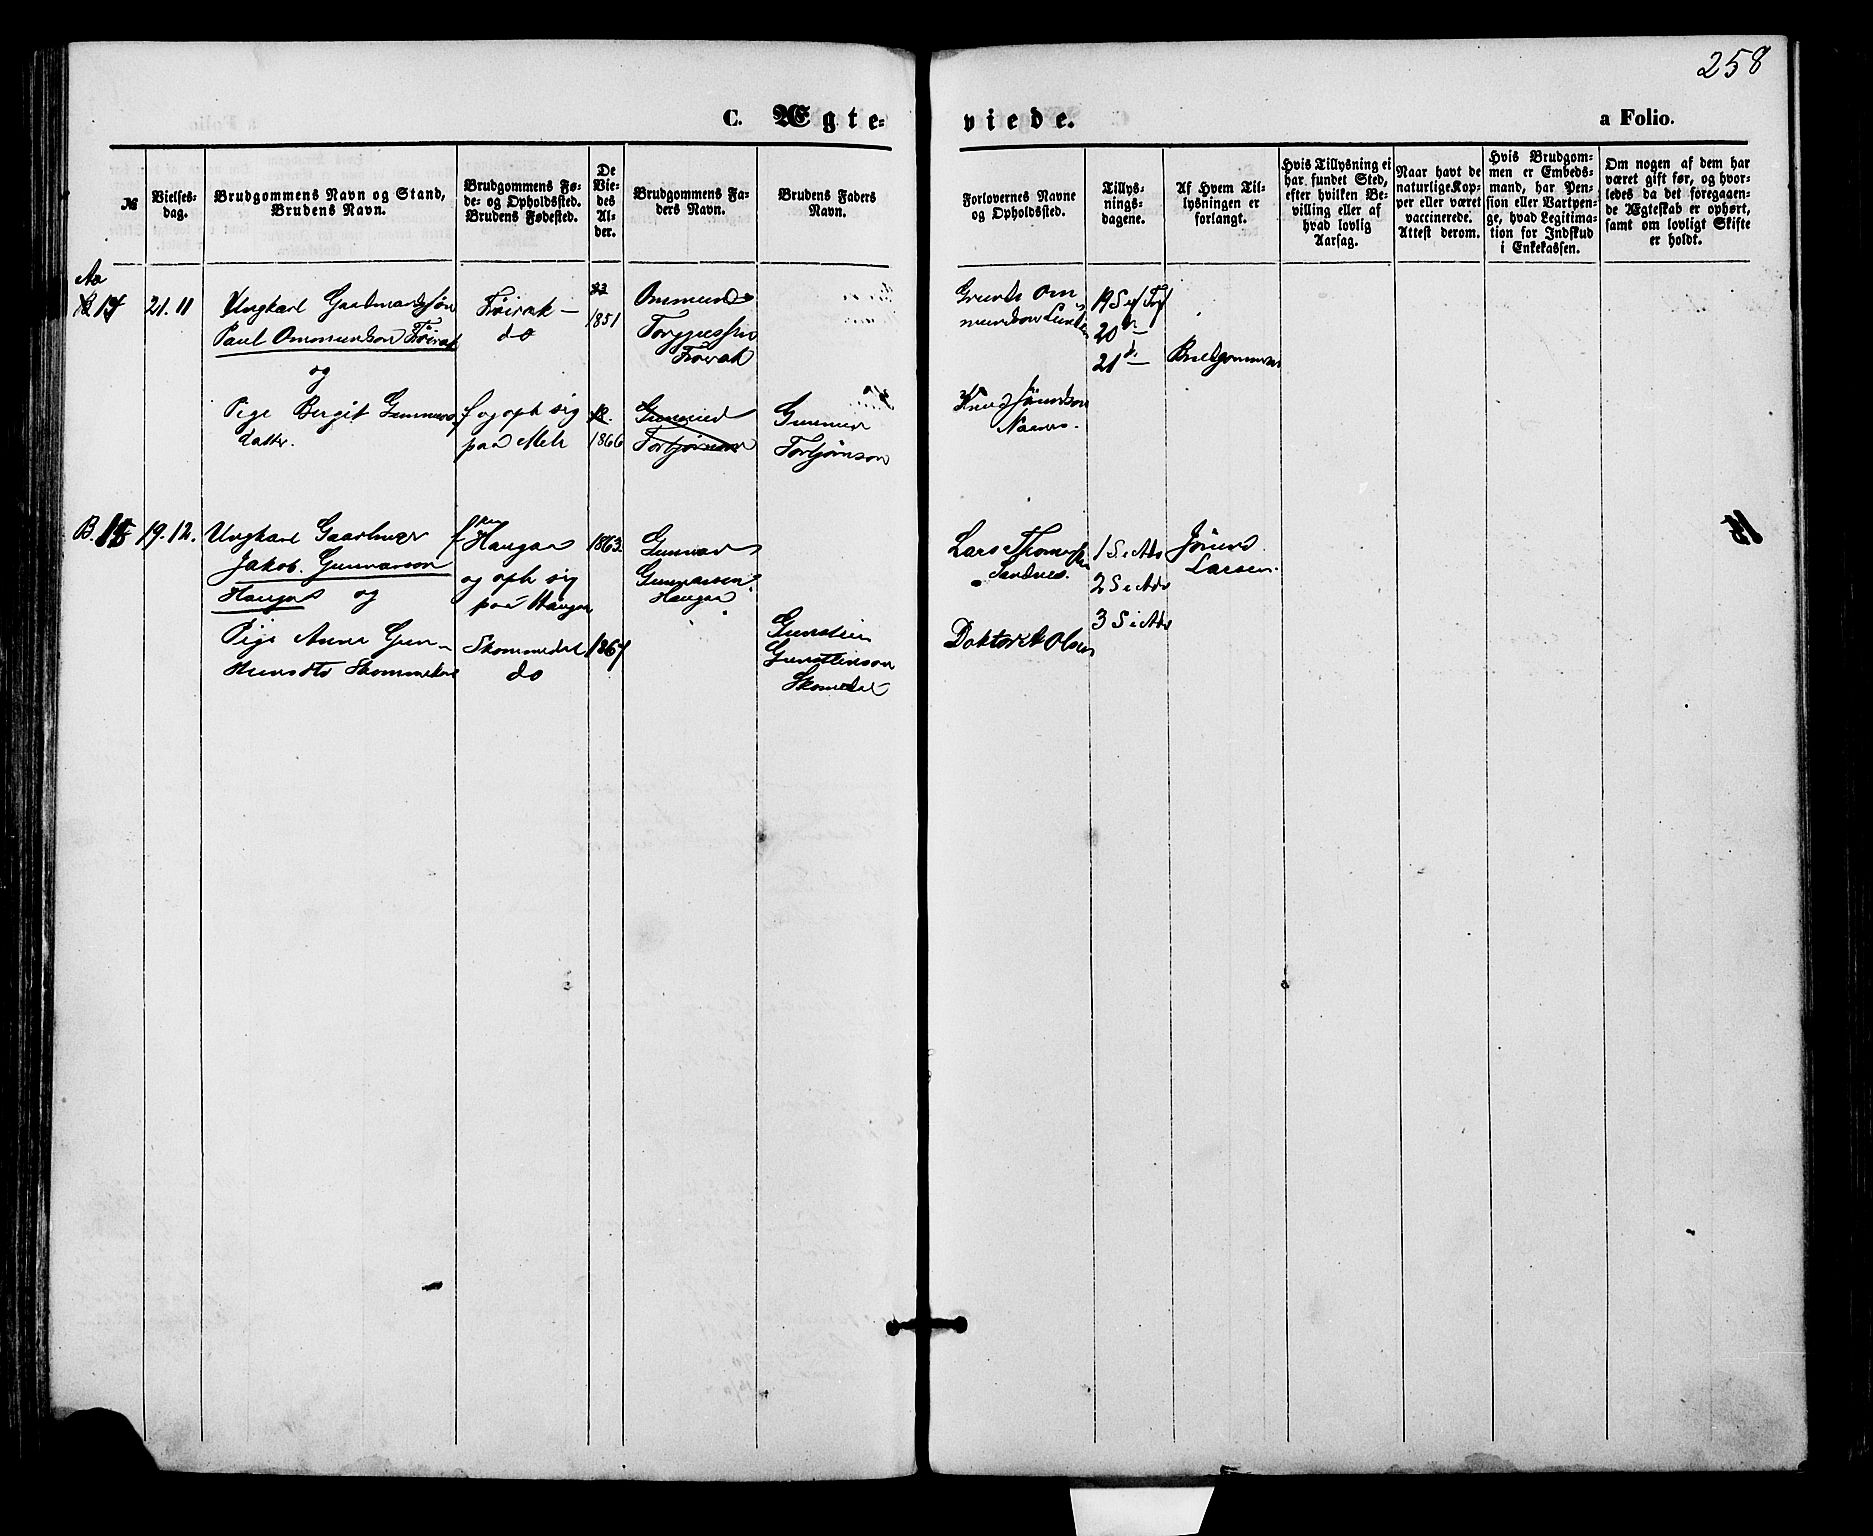 258
C. Ægte-
viede.
a Folio.
№
Vielses-
dag.
Brudgommens Navn og Stand,
Brudens Navn.
Brudgommens Fø-
de- og Opholdssted.
Brudens Fødested.
De
Vie-
des
Al-
der.
Brudgommens Fa-
ders Navn.
Brudens Faders
Navn.
Forlovernes Navne
og Opholdssted.
Tillys-
nings-
dagene.
Af Hvem Til-
lysningen er
forlangt.
Hvis Tillysning ei
har fundet Sted,
efter hvilken Be-
villing eller af
hvad lovlig
Aarsag.
Naar havt de
naturlige Kop-
per eller været
vaccinerede.
Attest derom.
Hvis Brudgom-
men er Embeds-
mand, har Pen-
sion eller Vartpen-
ge, hvad Legitima-
tion for Indskud
i Enkekassen.
Om nogen af dem har
været gift før, og hvor-
ledes da det foregaaen-
de Ægteskab er ophørt,
samt om lovligt Skifte
er holdt.
Aa
14
21. 11
Ungkarl Gaardmandssøn
Paul Ommundson Frøirak
og
Pige Bergit Gunnars
datter
Frøirak –
do
f og oph sig
paa
1851
1866
Ommund
Torgjussen
Frøirak
Gunnar
Torbjørnson
Gunnar
Torbjørnson
Om
mundson
19 S e/ Tr/
20 d –
21 d –
Brudgommen
Knud
B. 15
19. 12.
Ungkarl Gaardmand
Jakob Gunnarson
Haugaa og
Pige Anne Gun-
Skommedal
f paa
Haugaa
og oph sig
paa Haugaa
Skommedal
do
1863
1867
Gunnar
Gunnarsen
Haugaa
Gunstein
Gunsteinson
Skomedal
Lars Thomassen
Sandnes.
Doktor Olsen
1 S i Adv
2 S i Adv
3 S i Adv
Larsen.